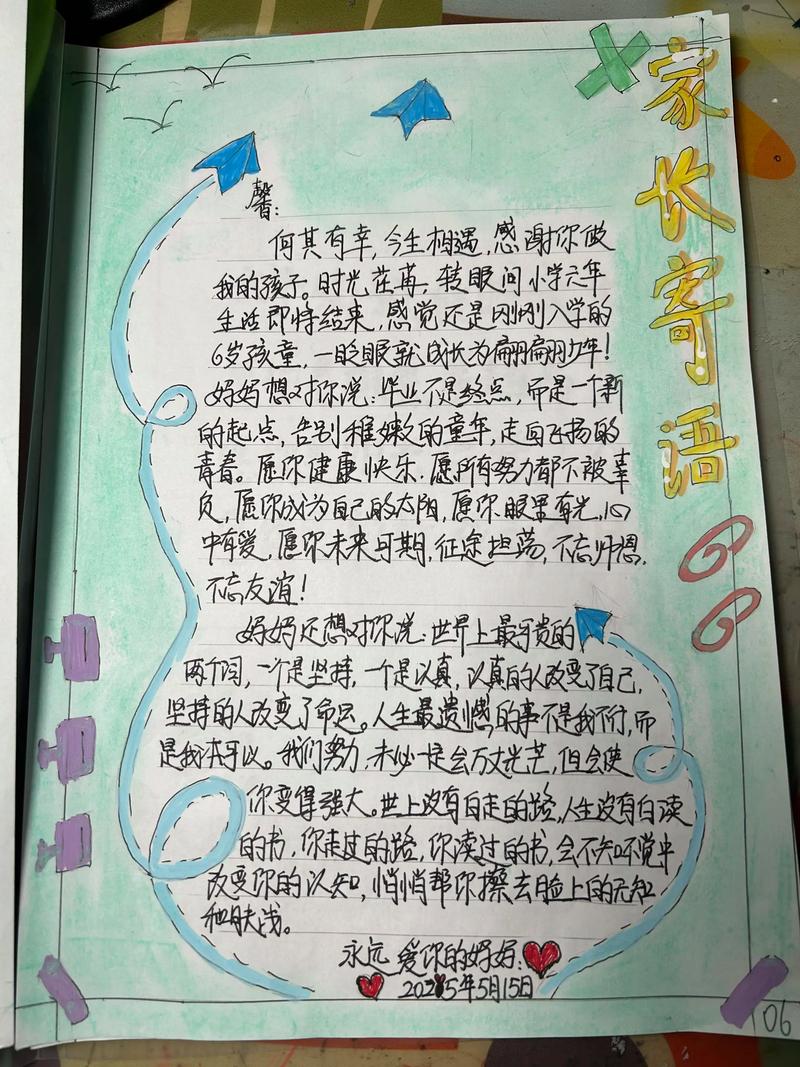 家长寄语
馨：
何其有幸，今生相遇，感谢你做
我的孩子。时光荏苒，转眼间小学六年
生活即将结束，感觉还是刚刚入学的
6岁孩童，一眨眼就成长为翩翩少年！
妈妈想对你说：毕业不是终点，而是一个新
的起点，告别稚嫩的童年，走向飞扬的
青春。愿你健康快乐，愿所有努力都不被辜
负，愿你成为自己的太阳，愿你眼里有光，心
中有爱，愿你未来可期，征途坦荡，不忘师恩，
不忘友谊！
妈妈还想对你说：世界上最珍贵的
两个词，一个是坚持，一个是认真，认真的人改变了自己，
坚持的人改变了命运。人生最遗憾的事不是我不行，而
是我本可以。我们努力，未必一定会万丈光芒，但会使
你变得强大。世上没有白走的路，人生没有白读
的书，你走过的路，你读过的书，会不知不觉中
改变你的认知，悄悄帮你擦去脸上的无知
和肤浅。
永远爱你的妈妈：
2025年5月15日
06